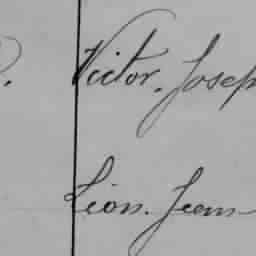 Victor. Josep
Léon. Jean